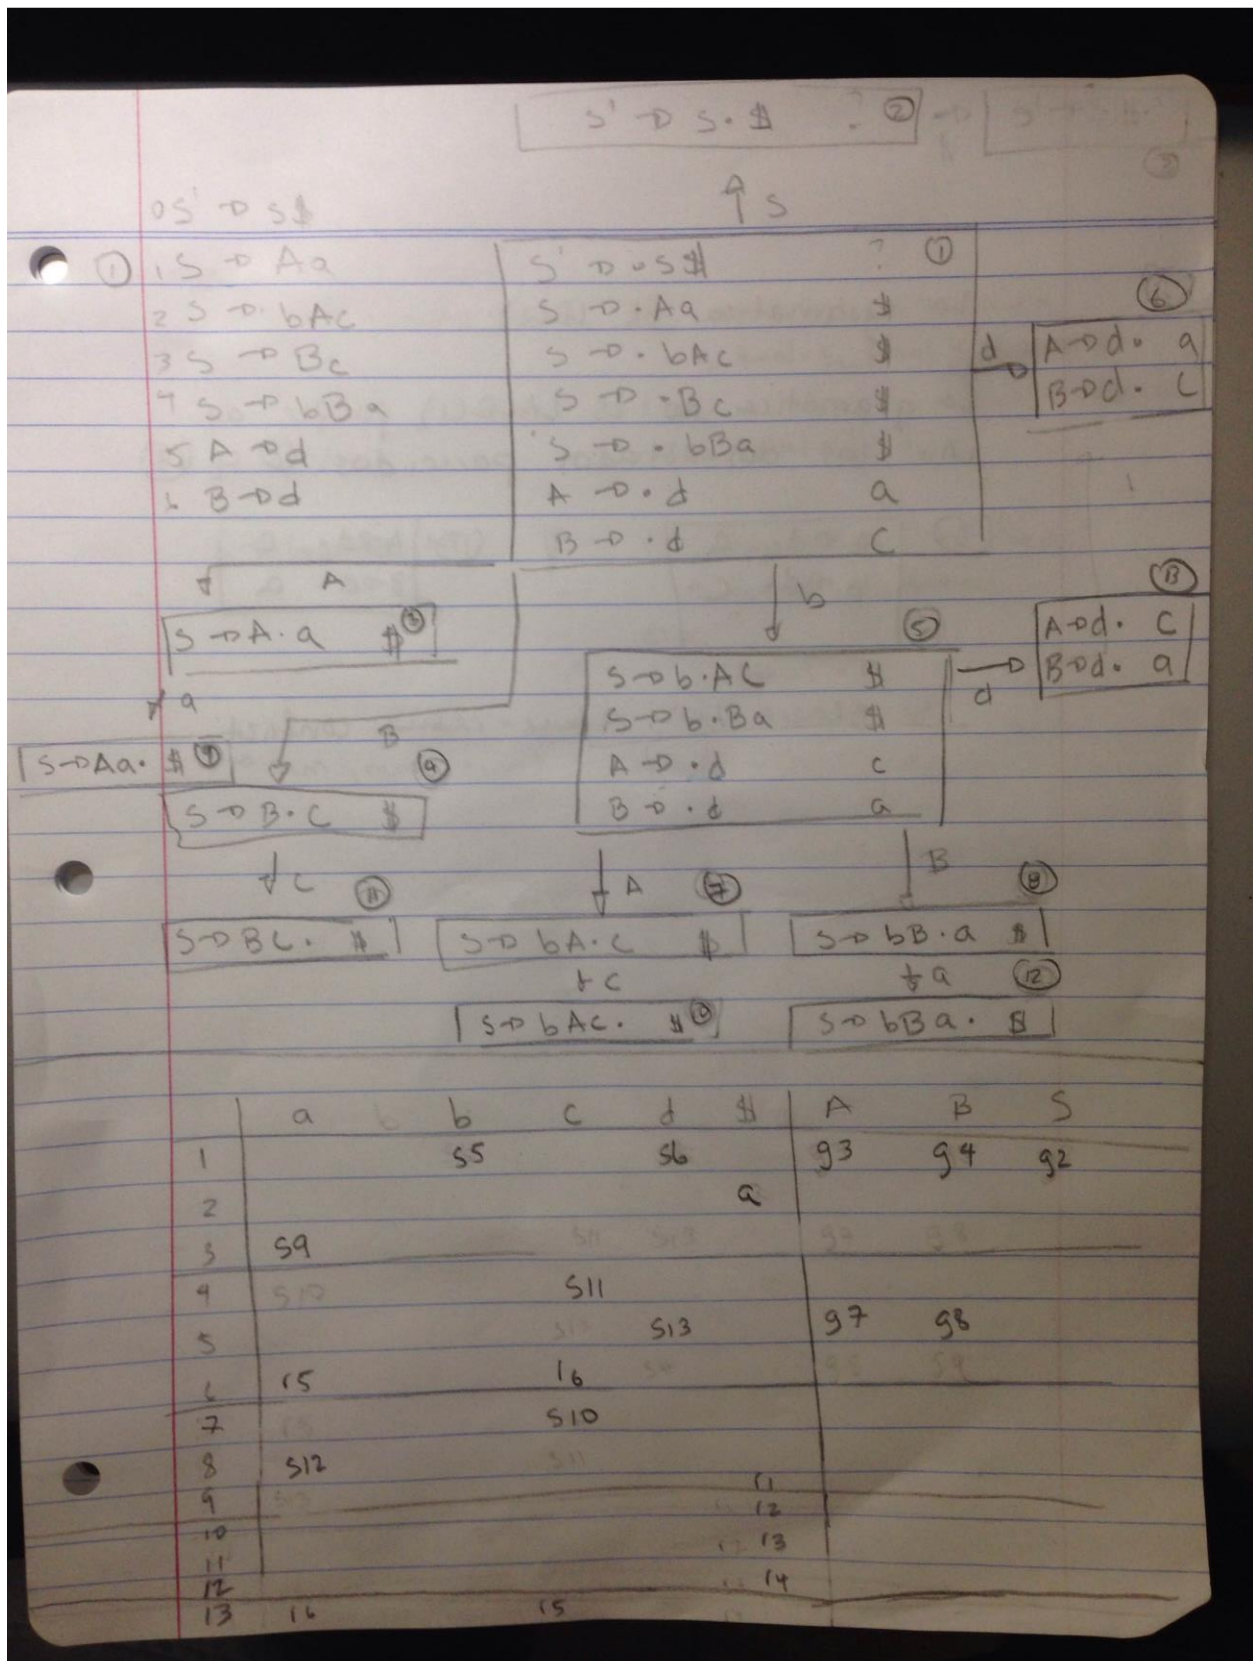 S' → S·$ ? ②
↑ S
0 S' → S$
① 1 S → Aa
2 S → bAc
3 S → Bc
4 S → bBa
5 A → d
6 B → d
S' → ·S$ ? ①
S → ·Aa $
S → ·bAc $
S → ·Bc $
S → ·bBa $
A → ·d a
B → ·d c
d → ⑥
A→d· a
B→d· c
A
S → A·a $ ③
a
S→Aa· $ ⑨
B
④
S → B·c $
b
⑤
S→b·Ac $
S→b·Ba $
A→·d c
B→·d a
d → ⑬
A→d· c
B→d· a
c ⑪
S→Bc· $
A ⑦
S→bA·c $
c
S→bAc· $ ⑩
B ⑧
S→bB·a $
a ⑫
S→bBa· $
a b c d $ A B S
1 s5 s6 g3 g4 g2
2 a
3 s9
4 s11
5 s13 g7 g8
6 r5 r6
7 s10
8 s12
9 r1
10 r2
11 r3
12 r4
13 r6 r5